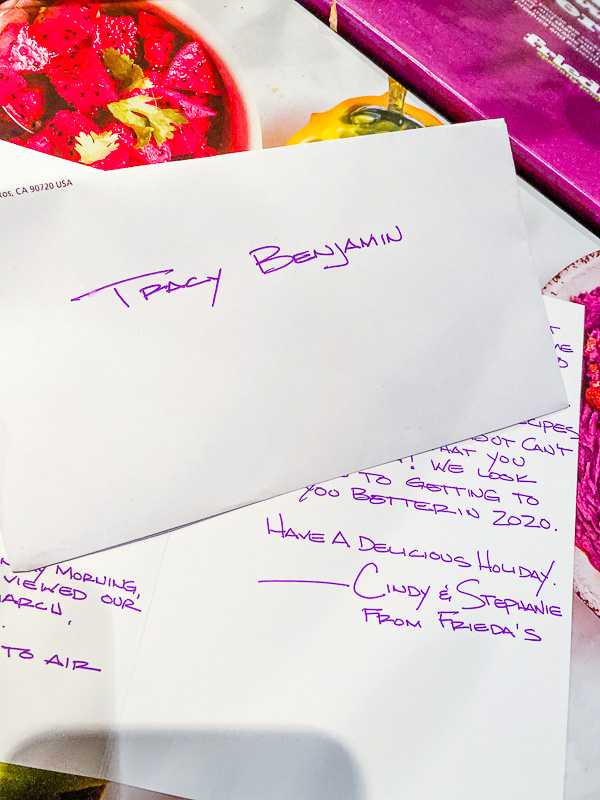 CA 90720 USA
Frieda
TRACY BENJAMIN
BUT CAN'T
THAT YOU
! WE LOOK
TO GETTING TO
YOU BETTER IN 2020.
HAVE A DELICIOUS HOLIDAY.
CINDY & STEPHANIE
FROM FRIEDA'S
MORNING,
VIEWED OUR
TO AIR